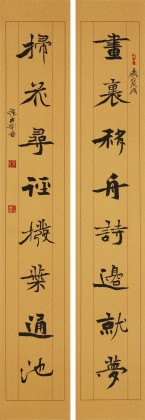 畫裏移舟詩邊就夢
掃花尋徑撥葉通池